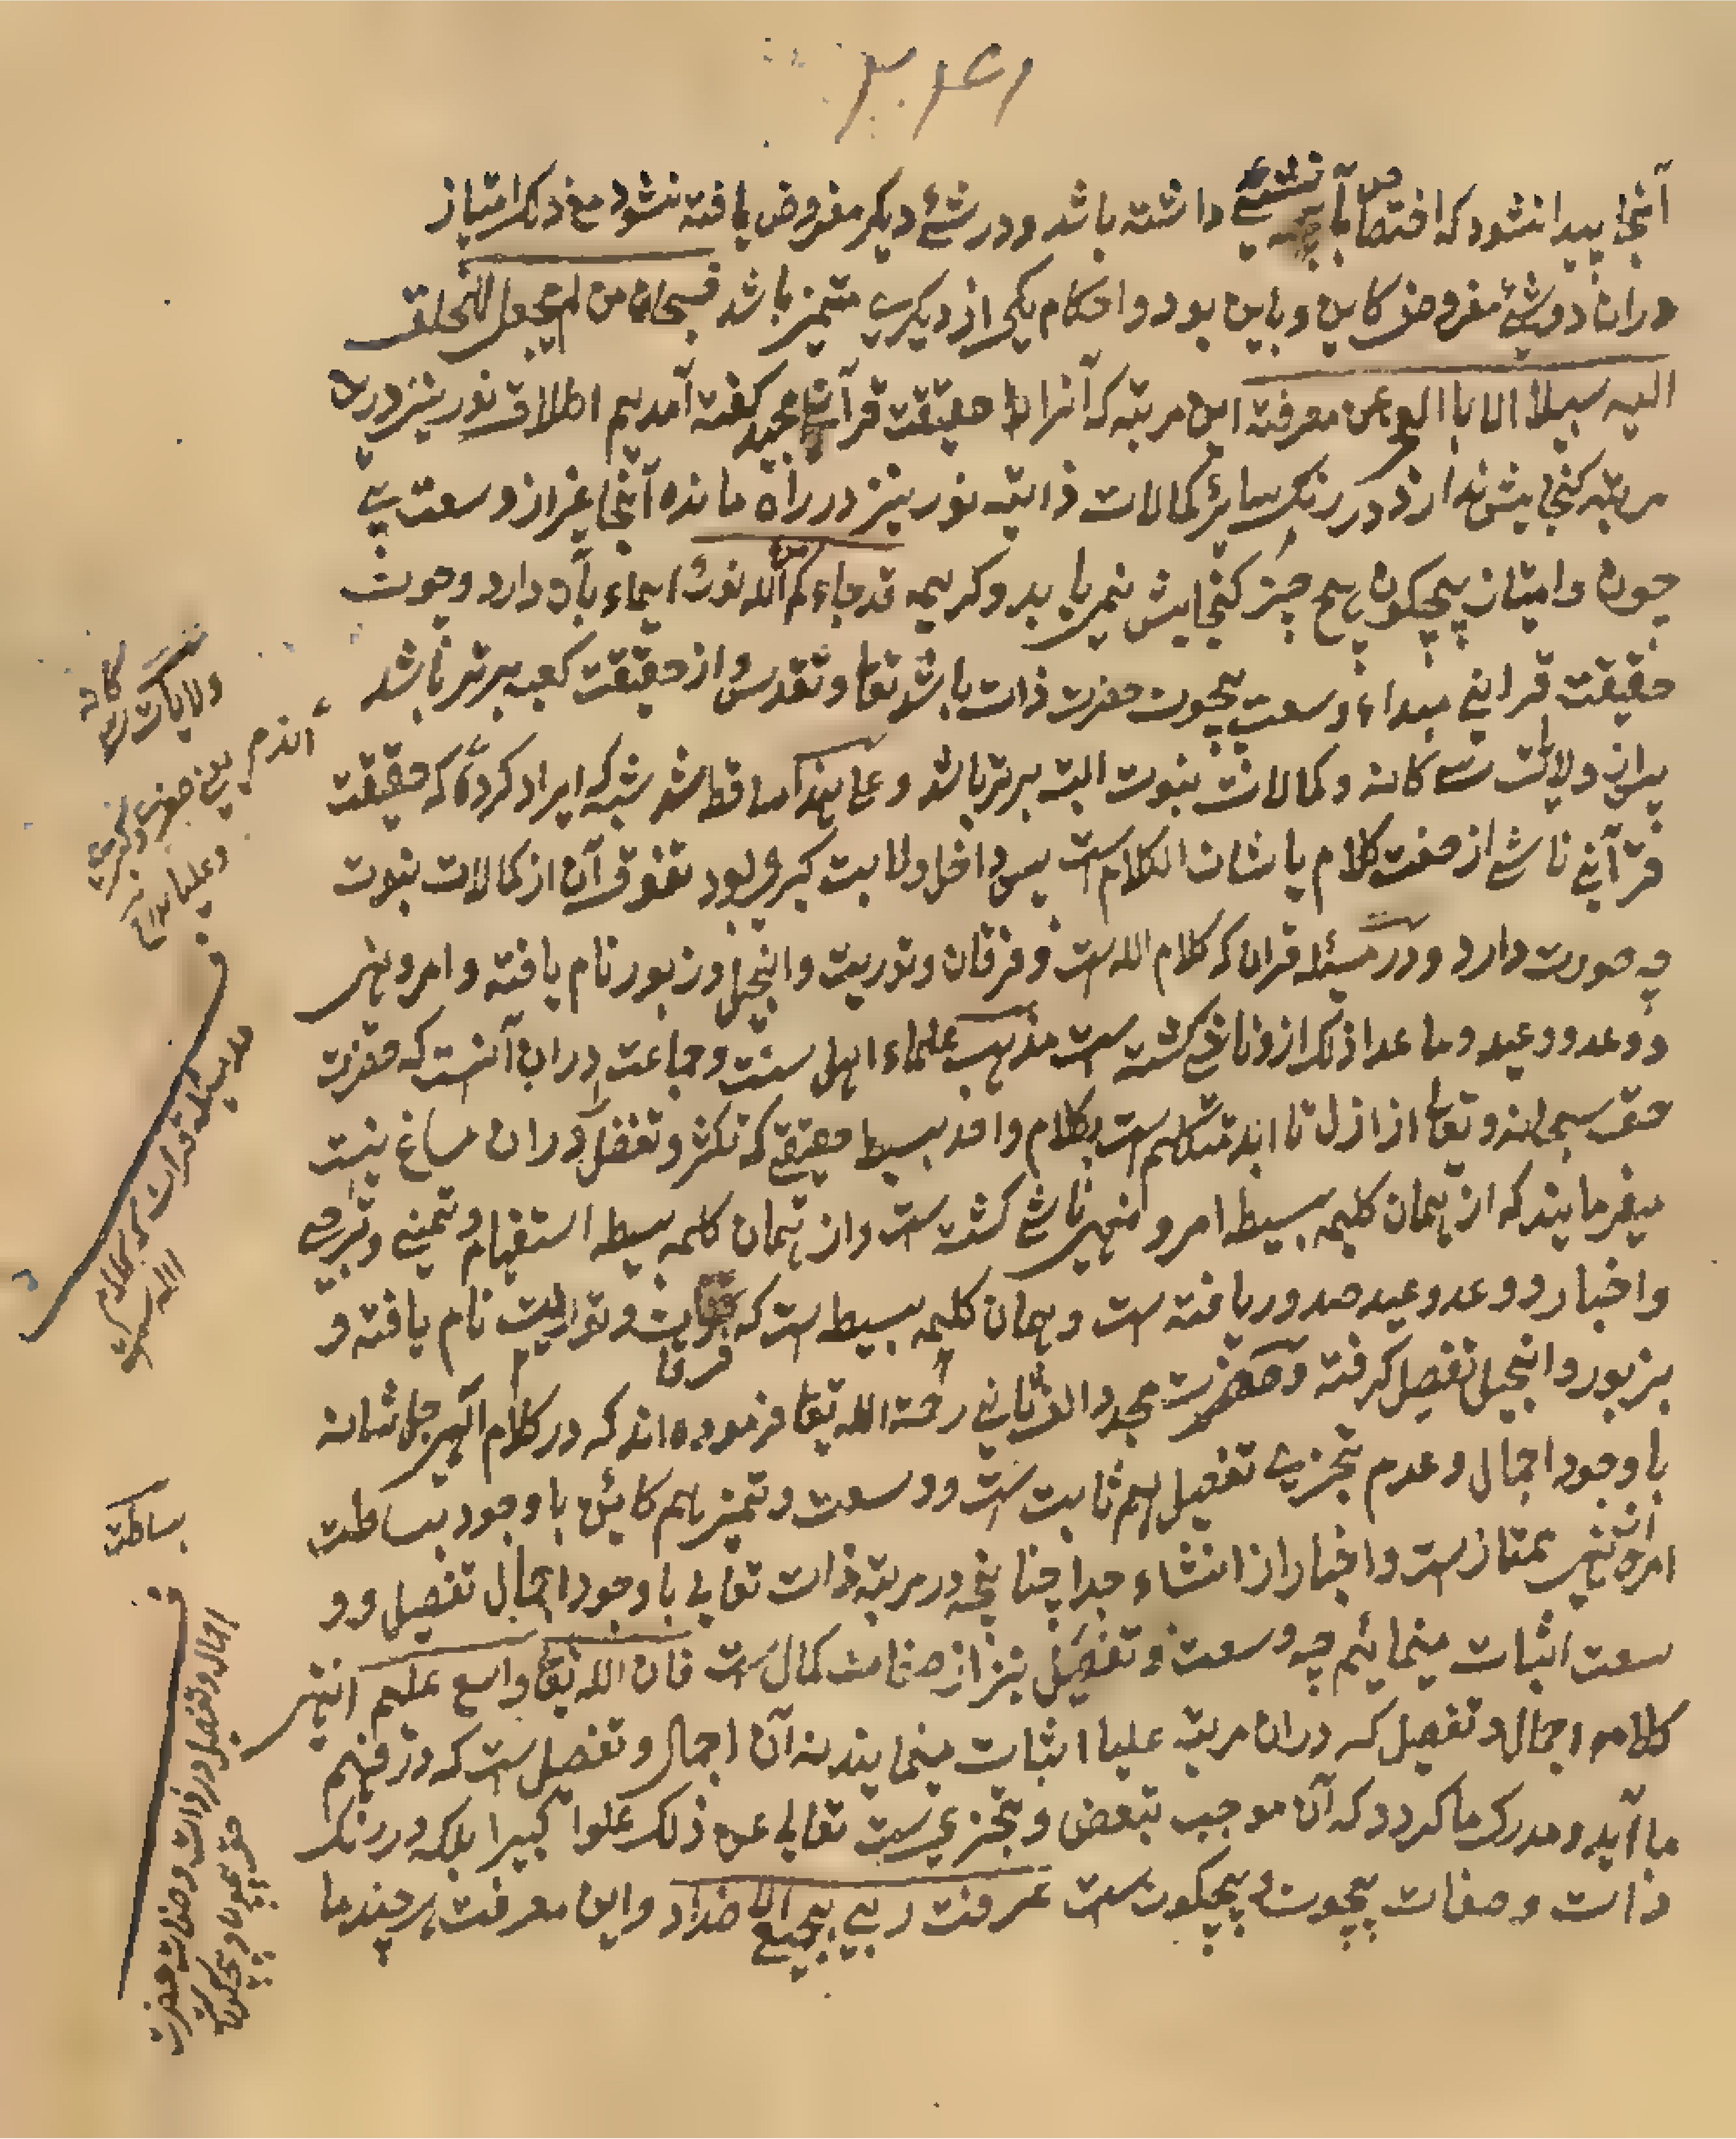 آنجا پیدا نشود که اختصاص با شئے داشته باشد و در شئے دیگر مفروض یافته نشود مع ذلک امتیاز
دران دو شئے مفروض کاین و باین بود و احکام یکی از دیگرے متمیز باشد فسبحان من لم یجعل للخلق
الیه سبیلا الا بالعجز عن معرفته این مرتبه که آنرا حقیقت قرآنی مجید گفته آمدیم اطلاق نور نیز درین
مرتبه گنجایش ندارد و در رنگ سائر کمالات ذاتیه نور نیز در راه مانده آنجا غیر از وسعت بے
چون و امتیاز بیچگون هیچ چیز گنجایش نمی یابد و کریمه قد جاءکم من الله نور ایماء بآن دارد و چون
حقیقت قرآنی مبداء وسعت بیچون حضرت ذات باشد تعا و تقدس و از حقیقت کعبه برتر باشد
پس از ولایت سه گانه و کمالات نبوت البته برتر باشد و علی هذا ساقط شد شبه که ایراد کرده که حقیقت
قرآنے ناشے از صفت کلام یا شان الکلام است پس داخل ولایت کبری بود تفوق آن از کمالات نبوت
چه صورت دارد و در مسئله قران که کلام الله ست و فرقان و توریت و انجیل و زبور نام یافته و امر و نهی
و وعد و وعید و ما عدا ذلک ازو ناشے گشته ست مذهب علماء اهل سنت و جماعت دران آنست که حضرت
حق سبحانه و تعا از ازل تا ابد متکلم ست بکلام واحد بسیط حقیقے که تکثر و تفضل دران مساغ نیست
میفرمایند که از همان کلمه بسیطه امر و نهی ناشے گشته ست و از همان کلمه بسیطه استفهام و تمنے و ترجے
و اخبار و وعد و وعید صدور یافته ست و همان کلیمه بسیطه ست که فرقان و توریت نام یافته و
بزبور و انجیل تفصیل گرفته و حضرت مجدد الف ثانی رحمة الله تعا فرموده اند که در کلام الهی جل شانه
با وجود اجمال و عدم تجزی تفصیل هم ثابت ست و وسعت و تمیز هم کاین با وجود بساطت
امر از نهی ممتازست و اخبار از انشاء جدا چنانچه در مرتبه ذات تعالی با وجود اجمال تفصیل و و
سعت اثبات مینمائیم چه وسعت و تفصیل نیز از صفات کمال ست فان الله تعا واسع علیم انتهی
کلامه اجمال و تفصیل که دران مرتبه علیا اثبات مینمایند نه آن اجمال و تفصیل ست که در فهم
ما آید و مدرک ما گردد که آن موجب تبعض و تجزی ست تعالی عن ذلک علوا کبیرا بلکه در رنگ
ذات و صفات بیچون و بیچگون ست عرفت ربی بجمع الاضداد و این معرفت هر چند ما
ولایات سه گانه
یعنی صغری و کبری
و علیا
مسئله قران که کلام
الله ست
بساطت
اجمال و تفصیل در ذات و صفات حضرت
حق بیچون و بیچگون